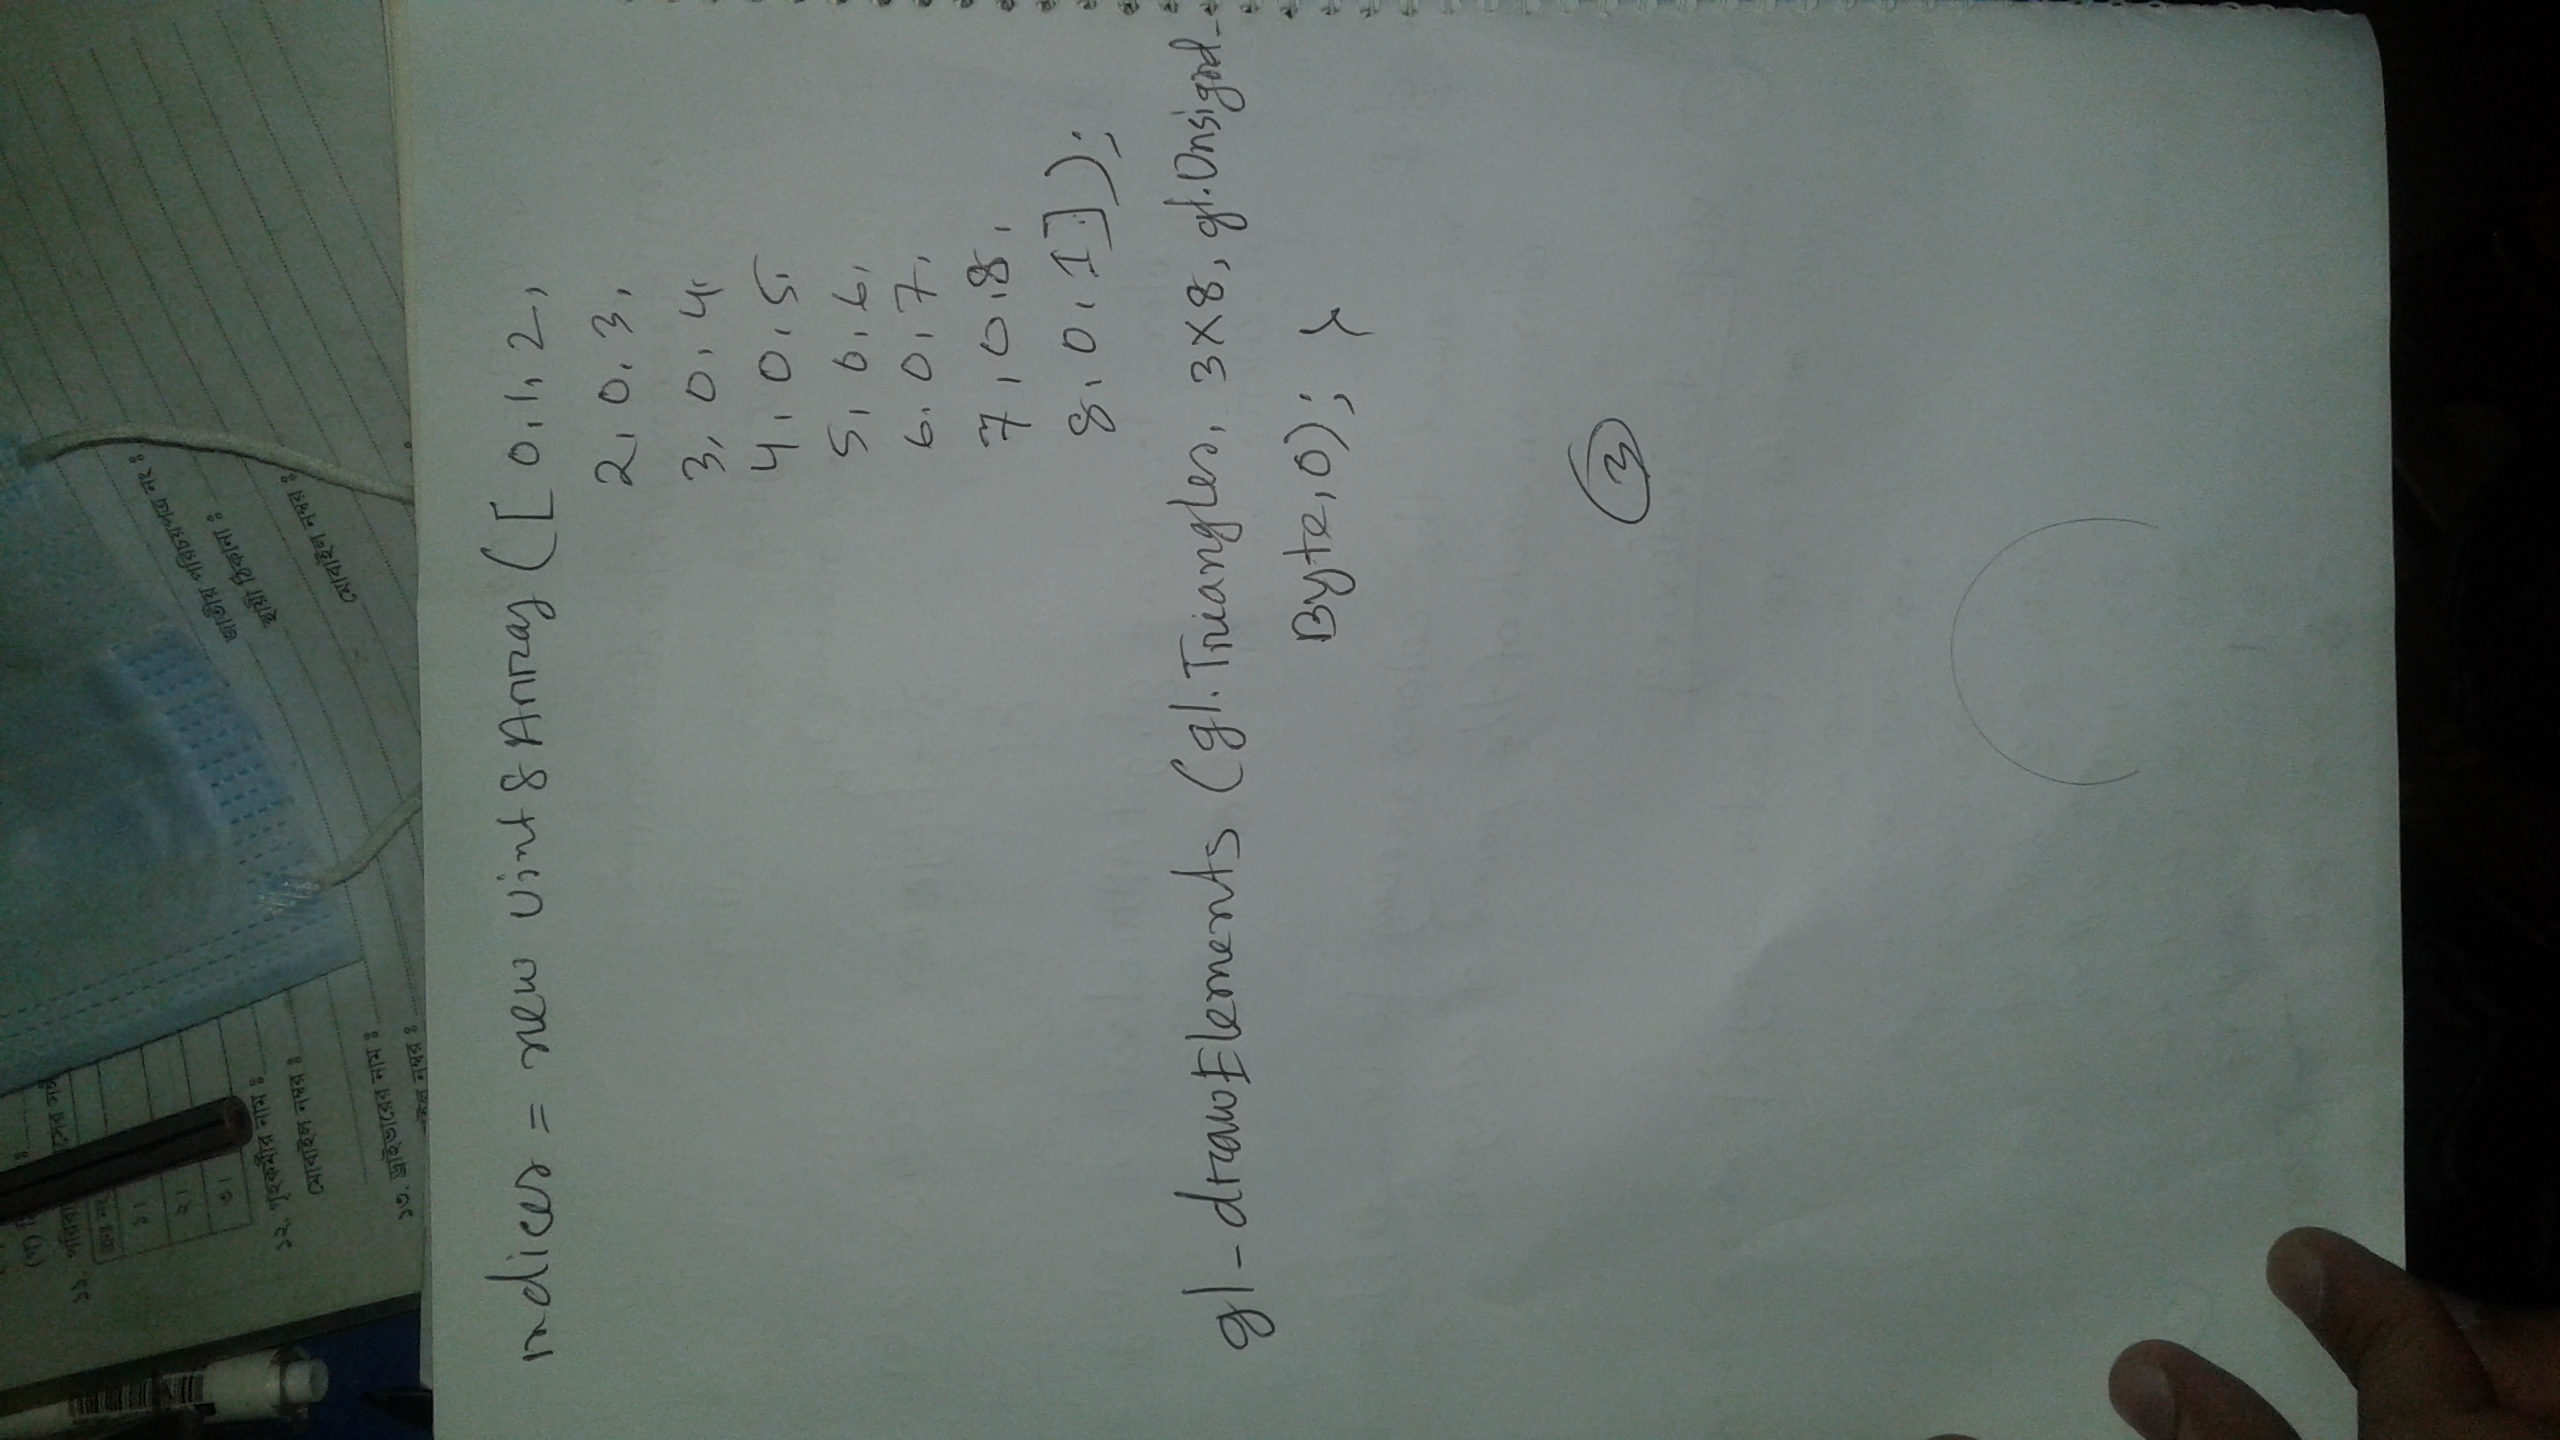 ১১. 
ক্রঃ নং
১।
২।
৩।
১২. গৃহকর্মীর নাম ঃ
মোবাইল নম্বর ঃ
১৩. ড্রাইভারের নাম ঃ
নম্বর ঃ
জাতীয় পরিচয়পত্র নং ঃ
স্থায়ী ঠিকানা ঃ
মোবাইল নম্বর ঃ
indices = new Uint8Array ([ 0, 1, 2,
2, 0, 3,
3, 0, 4,
4, 0, 5,
5, 0, 6,
6, 0, 7,
7, 0, 8,
8, 0, 1 ] );
gl_drawElements (gl.Triangles, 3x8, gl.Unsigned_
Byte, 0); }
3